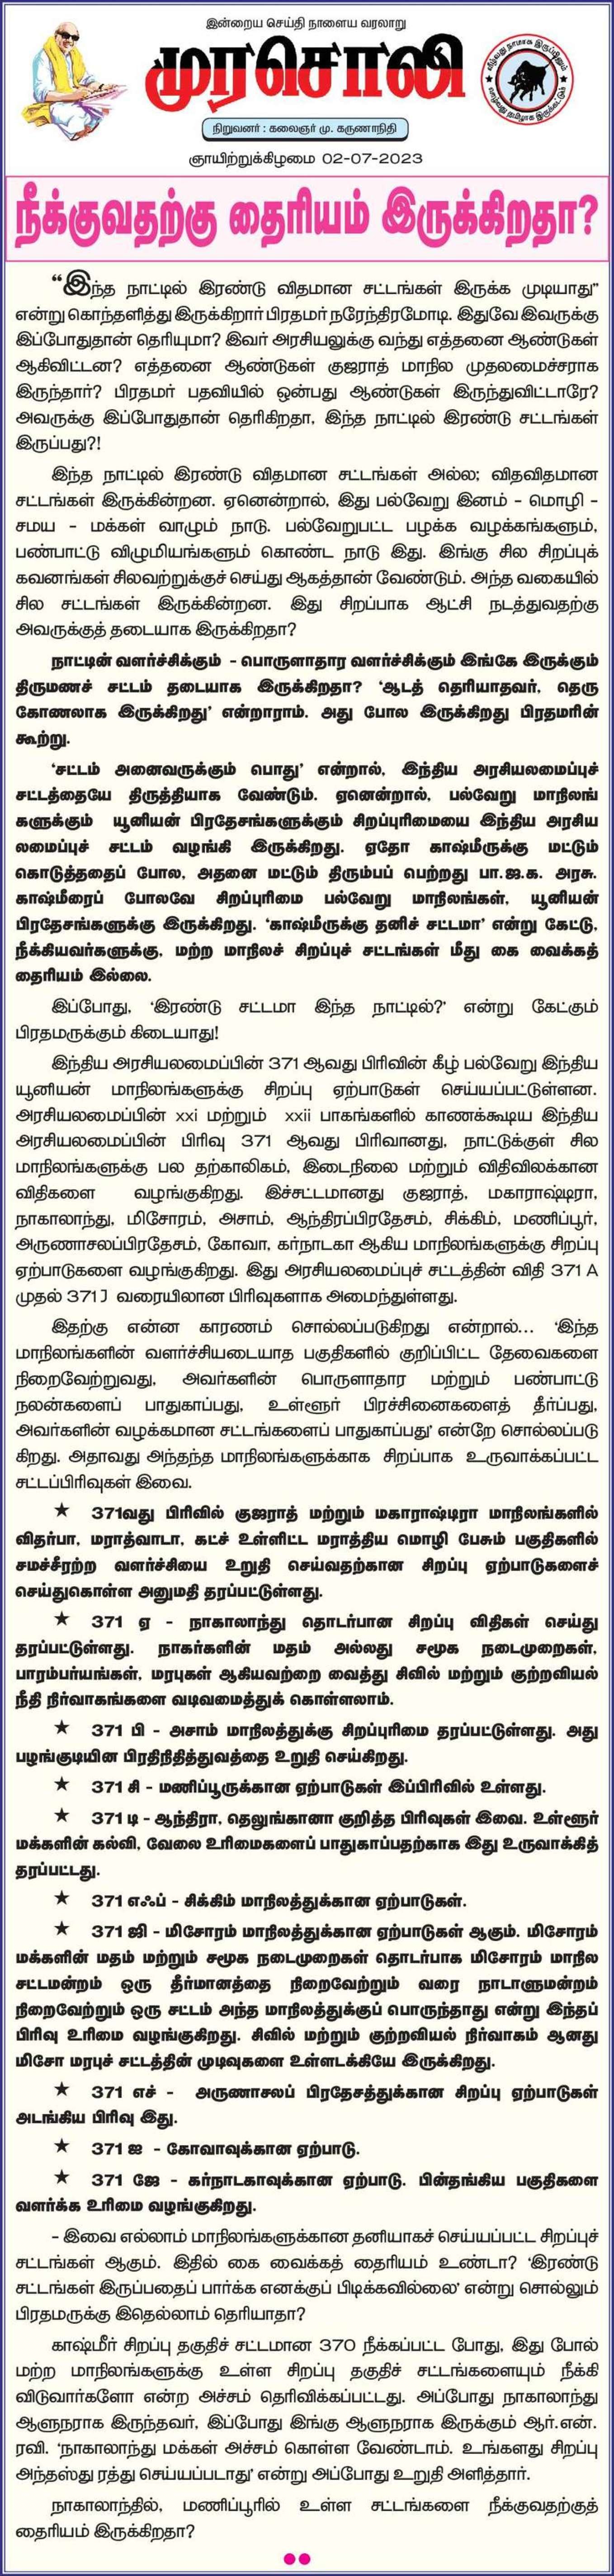 இன்றைய செய்தி நாளைய வரலாறு
முரசொலி
நிறுவனர் : கலைஞர் மு. கருணாநிதி
வீழ்வது நாமாக இருப்பினும்
வாழ்வது தமிழாக இருக்கட்டும்
ஞாயிற்றுக்கிழமை 02-07-2023
நீக்குவதற்கு தைரியம் இருக்கிறதா?
“இந்த நாட்டில் இரண்டு விதமான சட்டங்கள் இருக்க முடியாது”
என்று கொந்தளித்து இருக்கிறார் பிரதமர் நரேந்திரமோடி. இதுவே இவருக்கு
இப்போதுதான் தெரியுமா? இவர் அரசியலுக்கு வந்து எத்தனை ஆண்டுகள்
ஆகிவிட்டன? எத்தனை ஆண்டுகள் குஜராத் மாநில முதலமைச்சராக
இருந்தார்? பிரதமர் பதவியில் ஒன்பது ஆண்டுகள் இருந்துவிட்டாரே?
அவருக்கு இப்போதுதான் தெரிகிறதா, இந்த நாட்டில் இரண்டு சட்டங்கள்
இருப்பது?!
இந்த நாட்டில் இரண்டு விதமான சட்டங்கள் அல்ல; விதவிதமான
சட்டங்கள் இருக்கின்றன. ஏனென்றால், இது பல்வேறு இனம் - மொழி -
சமய - மக்கள் வாழும் நாடு. பல்வேறுபட்ட பழக்க வழக்கங்களும்,
பண்பாட்டு விழுமியங்களும் கொண்ட நாடு இது. இங்கு சில சிறப்புக்
கவனங்கள் சிலவற்றுக்குச் செய்து ஆகத்தான் வேண்டும். அந்த வகையில்
சில சட்டங்கள் இருக்கின்றன. இது சிறப்பாக ஆட்சி நடத்துவதற்கு
அவருக்குத் தடையாக இருக்கிறதா?
நாட்டின் வளர்ச்சிக்கும் - பொருளாதார வளர்ச்சிக்கும் இங்கே இருக்கும்
திருமணச் சட்டம் தடையாக இருக்கிறதா? ‘ஆடத் தெரியாதவர், தெரு
கோணலாக இருக்கிறது’ என்றாராம். அது போல இருக்கிறது பிரதமரின்
கூற்று.
‘சட்டம் அனைவருக்கும் பொது’ என்றால், இந்திய அரசியலமைப்புச்
சட்டத்தையே திருத்தியாக வேண்டும். ஏனென்றால், பல்வேறு மாநிலங்
களுக்கும் யூனியன் பிரதேசங்களுக்கும் சிறப்புரிமையை இந்திய அரசிய
லமைப்புச் சட்டம் வழங்கி இருக்கிறது. ஏதோ காஷ்மீருக்கு மட்டும்
கொடுத்ததைப் போல, அதனை மட்டும் திரும்பப் பெற்றது பா.ஜ.க. அரசு.
காஷ்மீரைப் போலவே சிறப்புரிமை பல்வேறு மாநிலங்கள், யூனியன்
பிரதேசங்களுக்கு இருக்கிறது. ‘காஷ்மீருக்கு தனிச் சட்டமா’ என்று கேட்டு,
நீக்கியவர்களுக்கு, மற்ற மாநிலச் சிறப்புச் சட்டங்கள் மீது கை வைக்கத்
தைரியம் இல்லை.
இப்போது, ‘இரண்டு சட்டமா இந்த நாட்டில்?’ என்று கேட்கும்
பிரதமருக்கும் கிடையாது!
இந்திய அரசியலமைப்பின் 371 ஆவது பிரிவின் கீழ் பல்வேறு இந்திய
யூனியன் மாநிலங்களுக்கு சிறப்பு ஏற்பாடுகள் செய்யப்பட்டுள்ளன.
அரசியலமைப்பின் xxi மற்றும் xxii பாகங்களில் காணக்கூடிய இந்திய
அரசியலமைப்பின் பிரிவு 371 ஆவது பிரிவானது, நாட்டுக்குள் சில
மாநிலங்களுக்கு பல தற்காலிகம், இடைநிலை மற்றும் விதிவிலக்கான
விதிகளை வழங்குகிறது. இச்சட்டமானது குஜராத், மகாராஷ்டிரா,
நாகாலாந்து, மிசோரம், அசாம், ஆந்திரப்பிரதேசம், சிக்கிம், மணிப்பூர்,
அருணாசலப்பிரதேசம், கோவா, கர்நாடகா ஆகிய மாநிலங்களுக்கு சிறப்பு
ஏற்பாடுகளை வழங்குகிறது. இது அரசியலமைப்புச் சட்டத்தின் விதி 371 A
முதல் 371 J வரையிலான பிரிவுகளாக அமைந்துள்ளது.
இதற்கு என்ன காரணம் சொல்லப்படுகிறது என்றால்... ‘இந்த
மாநிலங்களின் வளர்ச்சியடையாத பகுதிகளில் குறிப்பிட்ட தேவைகளை
நிறைவேற்றுவது, அவர்களின் பொருளாதார மற்றும் பண்பாட்டு
நலன்களைப் பாதுகாப்பது, உள்ளூர் பிரச்சினைகளைத் தீர்ப்பது,
அவர்களின் வழக்கமான சட்டங்களைப் பாதுகாப்பது’ என்றே சொல்லப்படு
கிறது. அதாவது அந்தந்த மாநிலங்களுக்காக சிறப்பாக உருவாக்கப்பட்ட
சட்டப்பிரிவுகள் இவை.
★ 371வது பிரிவில் குஜராத் மற்றும் மகாராஷ்டிரா மாநிலங்களில்
விதர்பா, மராத்வாடா, கட்ச் உள்ளிட்ட மராத்திய மொழி பேசும் பகுதிகளில்
சமச்சீரற்ற வளர்ச்சியை உறுதி செய்வதற்கான சிறப்பு ஏற்பாடுகளைச்
செய்துகொள்ள அனுமதி தரப்பட்டுள்ளது.
★ 371 ஏ - நாகாலாந்து தொடர்பான சிறப்பு விதிகள் செய்து
தரப்பட்டுள்ளது. நாகர்களின் மதம் அல்லது சமூக நடைமுறைகள்,
பாரம்பர்யங்கள், மரபுகள் ஆகியவற்றை வைத்து சிவில் மற்றும் குற்றவியல்
நீதி நிர்வாகங்களை வடிவமைத்துக் கொள்ளலாம்.
★ 371 பி - அசாம் மாநிலத்துக்கு சிறப்புரிமை தரப்பட்டுள்ளது. அது
பழங்குடியின பிரதிநிதித்துவத்தை உறுதி செய்கிறது.
★ 371 சி - மணிப்பூருக்கான ஏற்பாடுகள் இப்பிரிவில் உள்ளது.
★ 371 டி - ஆந்திரா, தெலுங்கானா குறித்த பிரிவுகள் இவை. உள்ளூர்
மக்களின் கல்வி, வேலை உரிமைகளைப் பாதுகாப்பதற்காக இது உருவாக்கித்
தரப்பட்டது.
★ 371 எஃப் - சிக்கிம் மாநிலத்துக்கான ஏற்பாடுகள்.
★ 371 ஜி - மிசோரம் மாநிலத்துக்கான ஏற்பாடுகள் ஆகும். மிசோரம்
மக்களின் மதம் மற்றும் சமூக நடைமுறைகள் தொடர்பாக மிசோரம் மாநில
சட்டமன்றம் ஒரு தீர்மானத்தை நிறைவேற்றும் வரை நாடாளுமன்றம்
நிறைவேற்றும் ஒரு சட்டம் அந்த மாநிலத்துக்குப் பொருந்தாது என்று இந்தப்
பிரிவு உரிமை வழங்குகிறது. சிவில் மற்றும் குற்றவியல் நிர்வாகம் ஆனது
மிசோ மரபுச் சட்டத்தின் முடிவுகளை உள்ளடக்கியே இருக்கிறது.
★ 371 எச் - அருணாசலப் பிரதேசத்துக்கான சிறப்பு ஏற்பாடுகள்
அடங்கிய பிரிவு இது.
★ 371 ஐ - கோவாவுக்கான ஏற்பாடு.
★ 371 ஜே - கர்நாடகாவுக்கான ஏற்பாடு. பின்தங்கிய பகுதிகளை
வளர்க்க உரிமை வழங்குகிறது.
- இவை எல்லாம் மாநிலங்களுக்கான தனியாகச் செய்யப்பட்ட சிறப்புச்
சட்டங்கள் ஆகும். இதில் கை வைக்கத் தைரியம் உண்டா? ‘இரண்டு
சட்டங்கள் இருப்பதைப் பார்க்க எனக்குப் பிடிக்கவில்லை’ என்று சொல்லும்
பிரதமருக்கு இதெல்லாம் தெரியாதா?
காஷ்மீர் சிறப்பு தகுதிச் சட்டமான 370 நீக்கப்பட்ட போது, இது போல்
மற்ற மாநிலங்களுக்கு உள்ள சிறப்பு தகுதிச் சட்டங்களையும் நீக்கி
விடுவார்களோ என்ற அச்சம் தெரிவிக்கப்பட்டது. அப்போது நாகாலாந்து
ஆளுநராக இருந்தவர், இப்போது இங்கு ஆளுநராக இருக்கும் ஆர்.என்.
ரவி. ‘நாகாலாந்து மக்கள் அச்சம் கொள்ள வேண்டாம். உங்களது சிறப்பு
அந்தஸ்து ரத்து செய்யப்படாது’ என்று அப்போது உறுதி அளித்தார்.
நாகாலாந்தில், மணிப்பூரில் உள்ள சட்டங்களை நீக்குவதற்குத்
தைரியம் இருக்கிறதா?